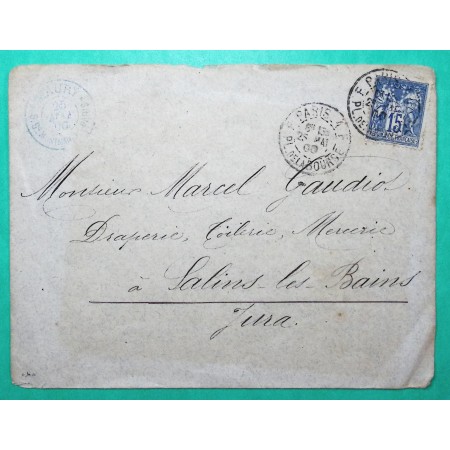 PARIS
25 MAI
PL. DE LA BOURSE
PL. DE
15
Monsieur Marcel Gaudio.
Draperie, Toilerie, Mercerie
à Salins-les-Bains
Jura.